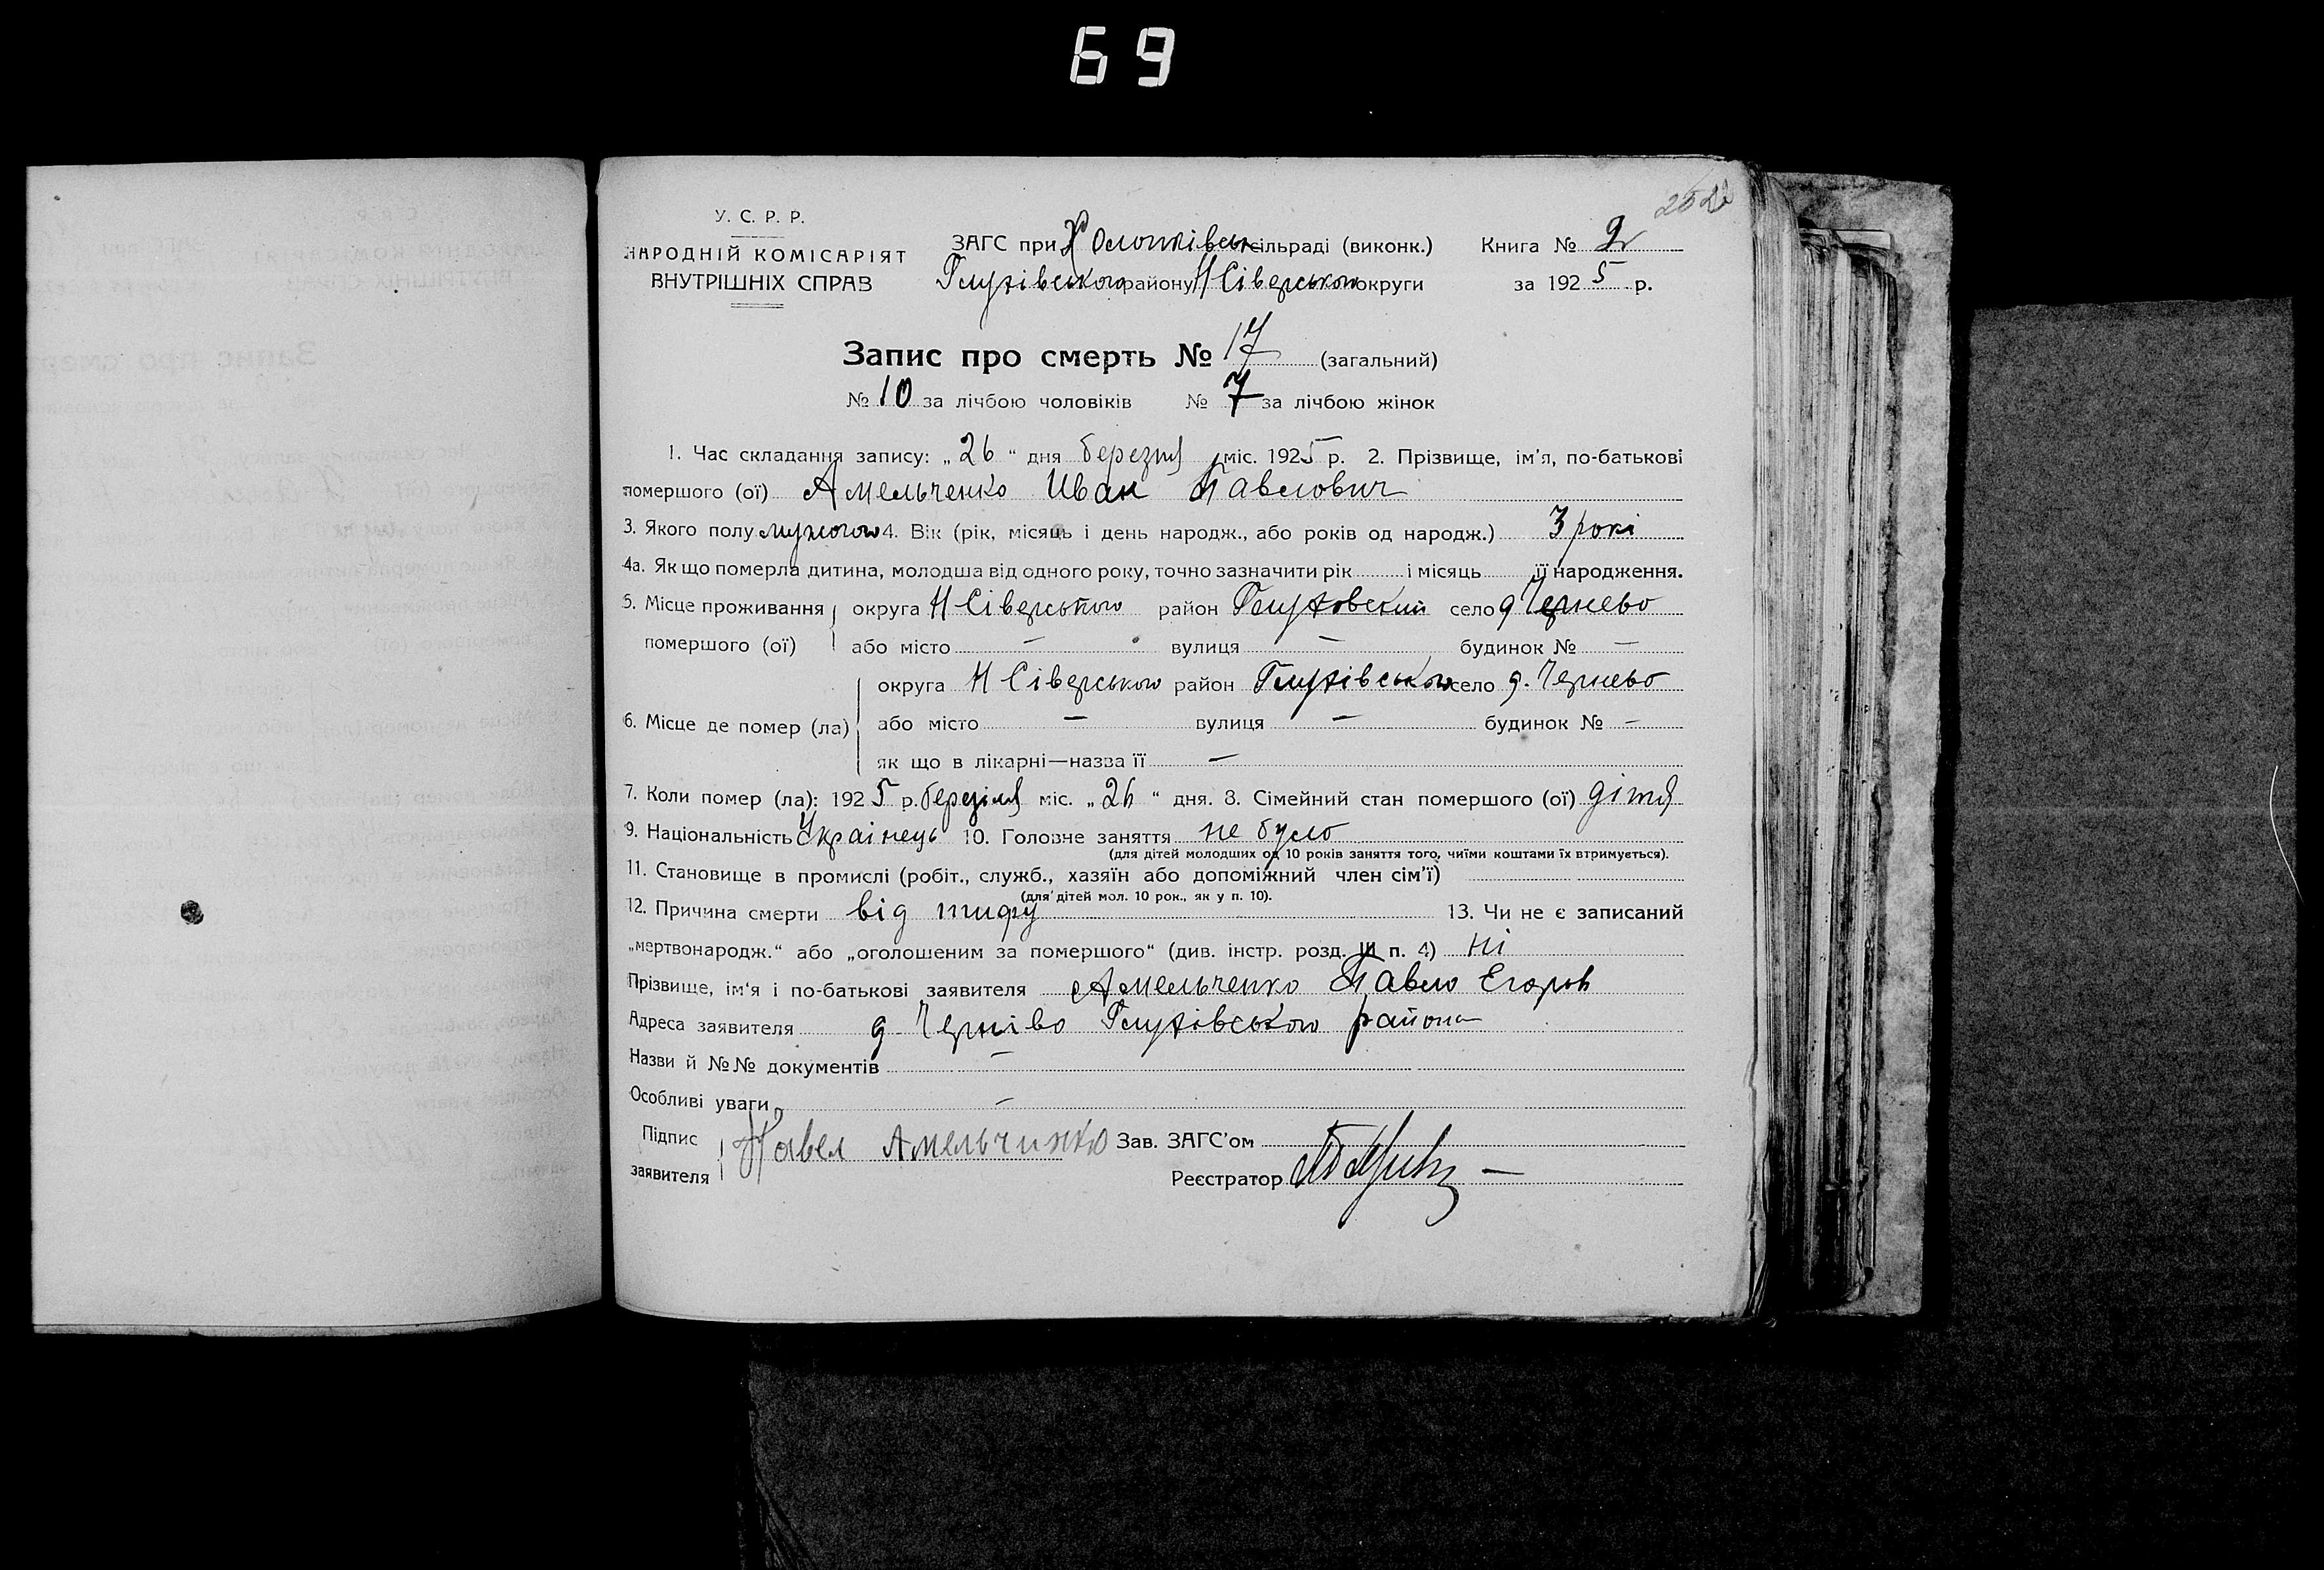 69
У. С. Р. Р.
НАРОДНІЙ КОМІСАРІЯТ
ВНУТРІШНІХ СПРАВ
ЗАГС при Холопківськ сільраді (виконк.)
Глухівського району Н Сіверського округи
Книга № 2
за 1925 р.
Запис про смерть № 17 (загальний)
№ 10 за лічбою чоловіків № 7 за лічбою жінок
1. Час складання запису: „26“ дня березня міс. 1925 р. 2. Прізвище, ім'я, по-батькові
помершого (ої) Амельченко Иван Павлович
3. Якого полу мужого 4. Вік (рік, місяць і день народж., або років од народж.) 3 рокі
4а. Як що померла дитина, молодша від одного року, точно зазначити рік і місяць її народження.
5. Місце проживання округа Н Сіверського район Глуховский село д Чернево
помершого (ої) або місто — вулиця — будинок № —
округа Н Сіверського район Глухівського село д. Чернево
6. Місце де помер (ла) або місто — вулиця — будинок № —
як що в лікарні—назва її —
7. Коли помер (ла): 1925 р. березіля міс. „26“ дня. 8. Сімейний стан помершого (ої) дітя
9. Національність Українець 10. Головне заняття не було
(для дітей молодших од 10 років заняття того, чиїми коштами їх втримується).
11. Становище в промислі (робіт., служб., хазяїн або допоміжний член сім'ї)
(для дітей мол. 10 рок., як у п. 10).
12. Причина смерти від тифу 13. Чи не є записаний
„мертвонародж.“ або „оголошеним за помершого“ (див. інстр. розд. III п. 4) ні
Прізвище, ім'я і по-батькові заявителя Амельченко Павло Егоров
Адреса заявителя д. Черніво Глухівського района
Назви й №№ документів —
Особливі уваги —
Підпис заявителя Павел Амельчинко Зав. ЗАГС'ом
Реєстратор